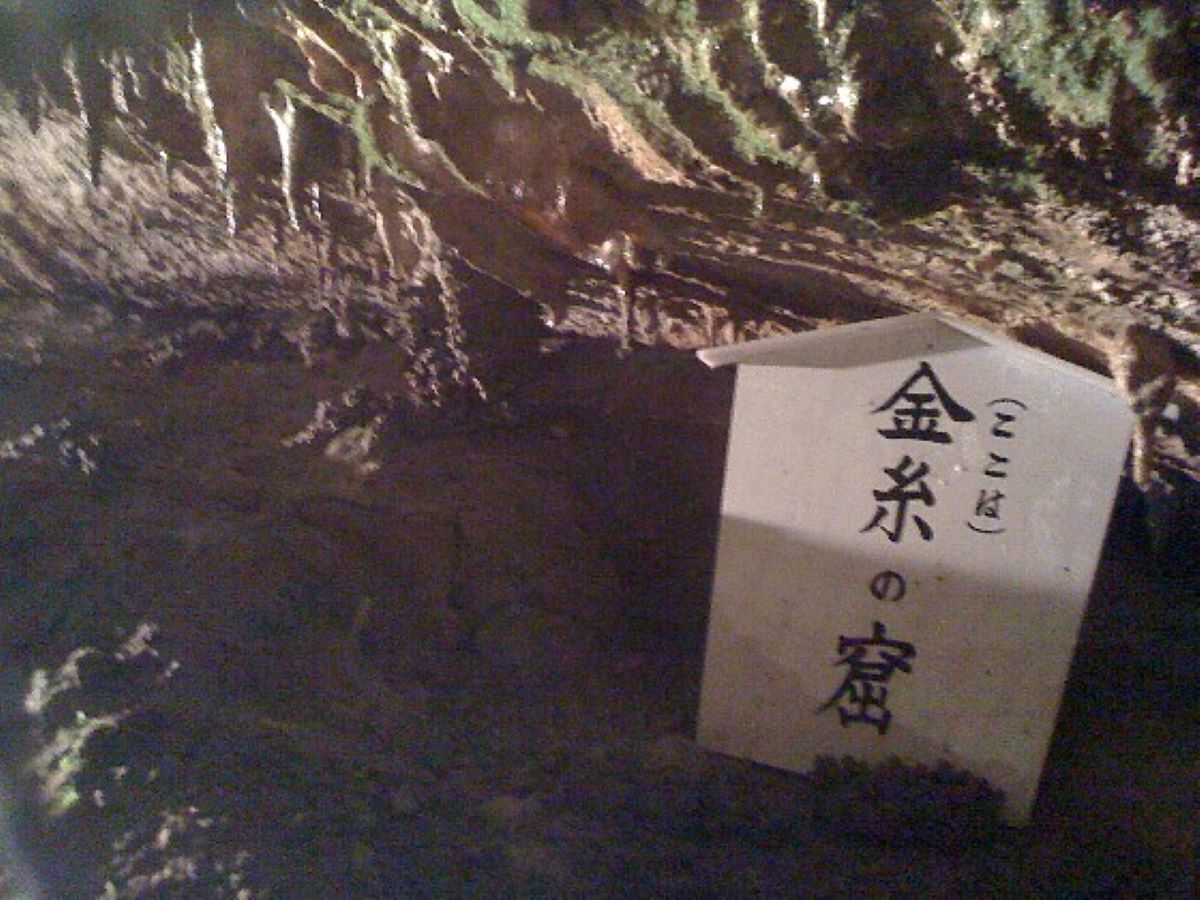 (ここは)
金糸の窟